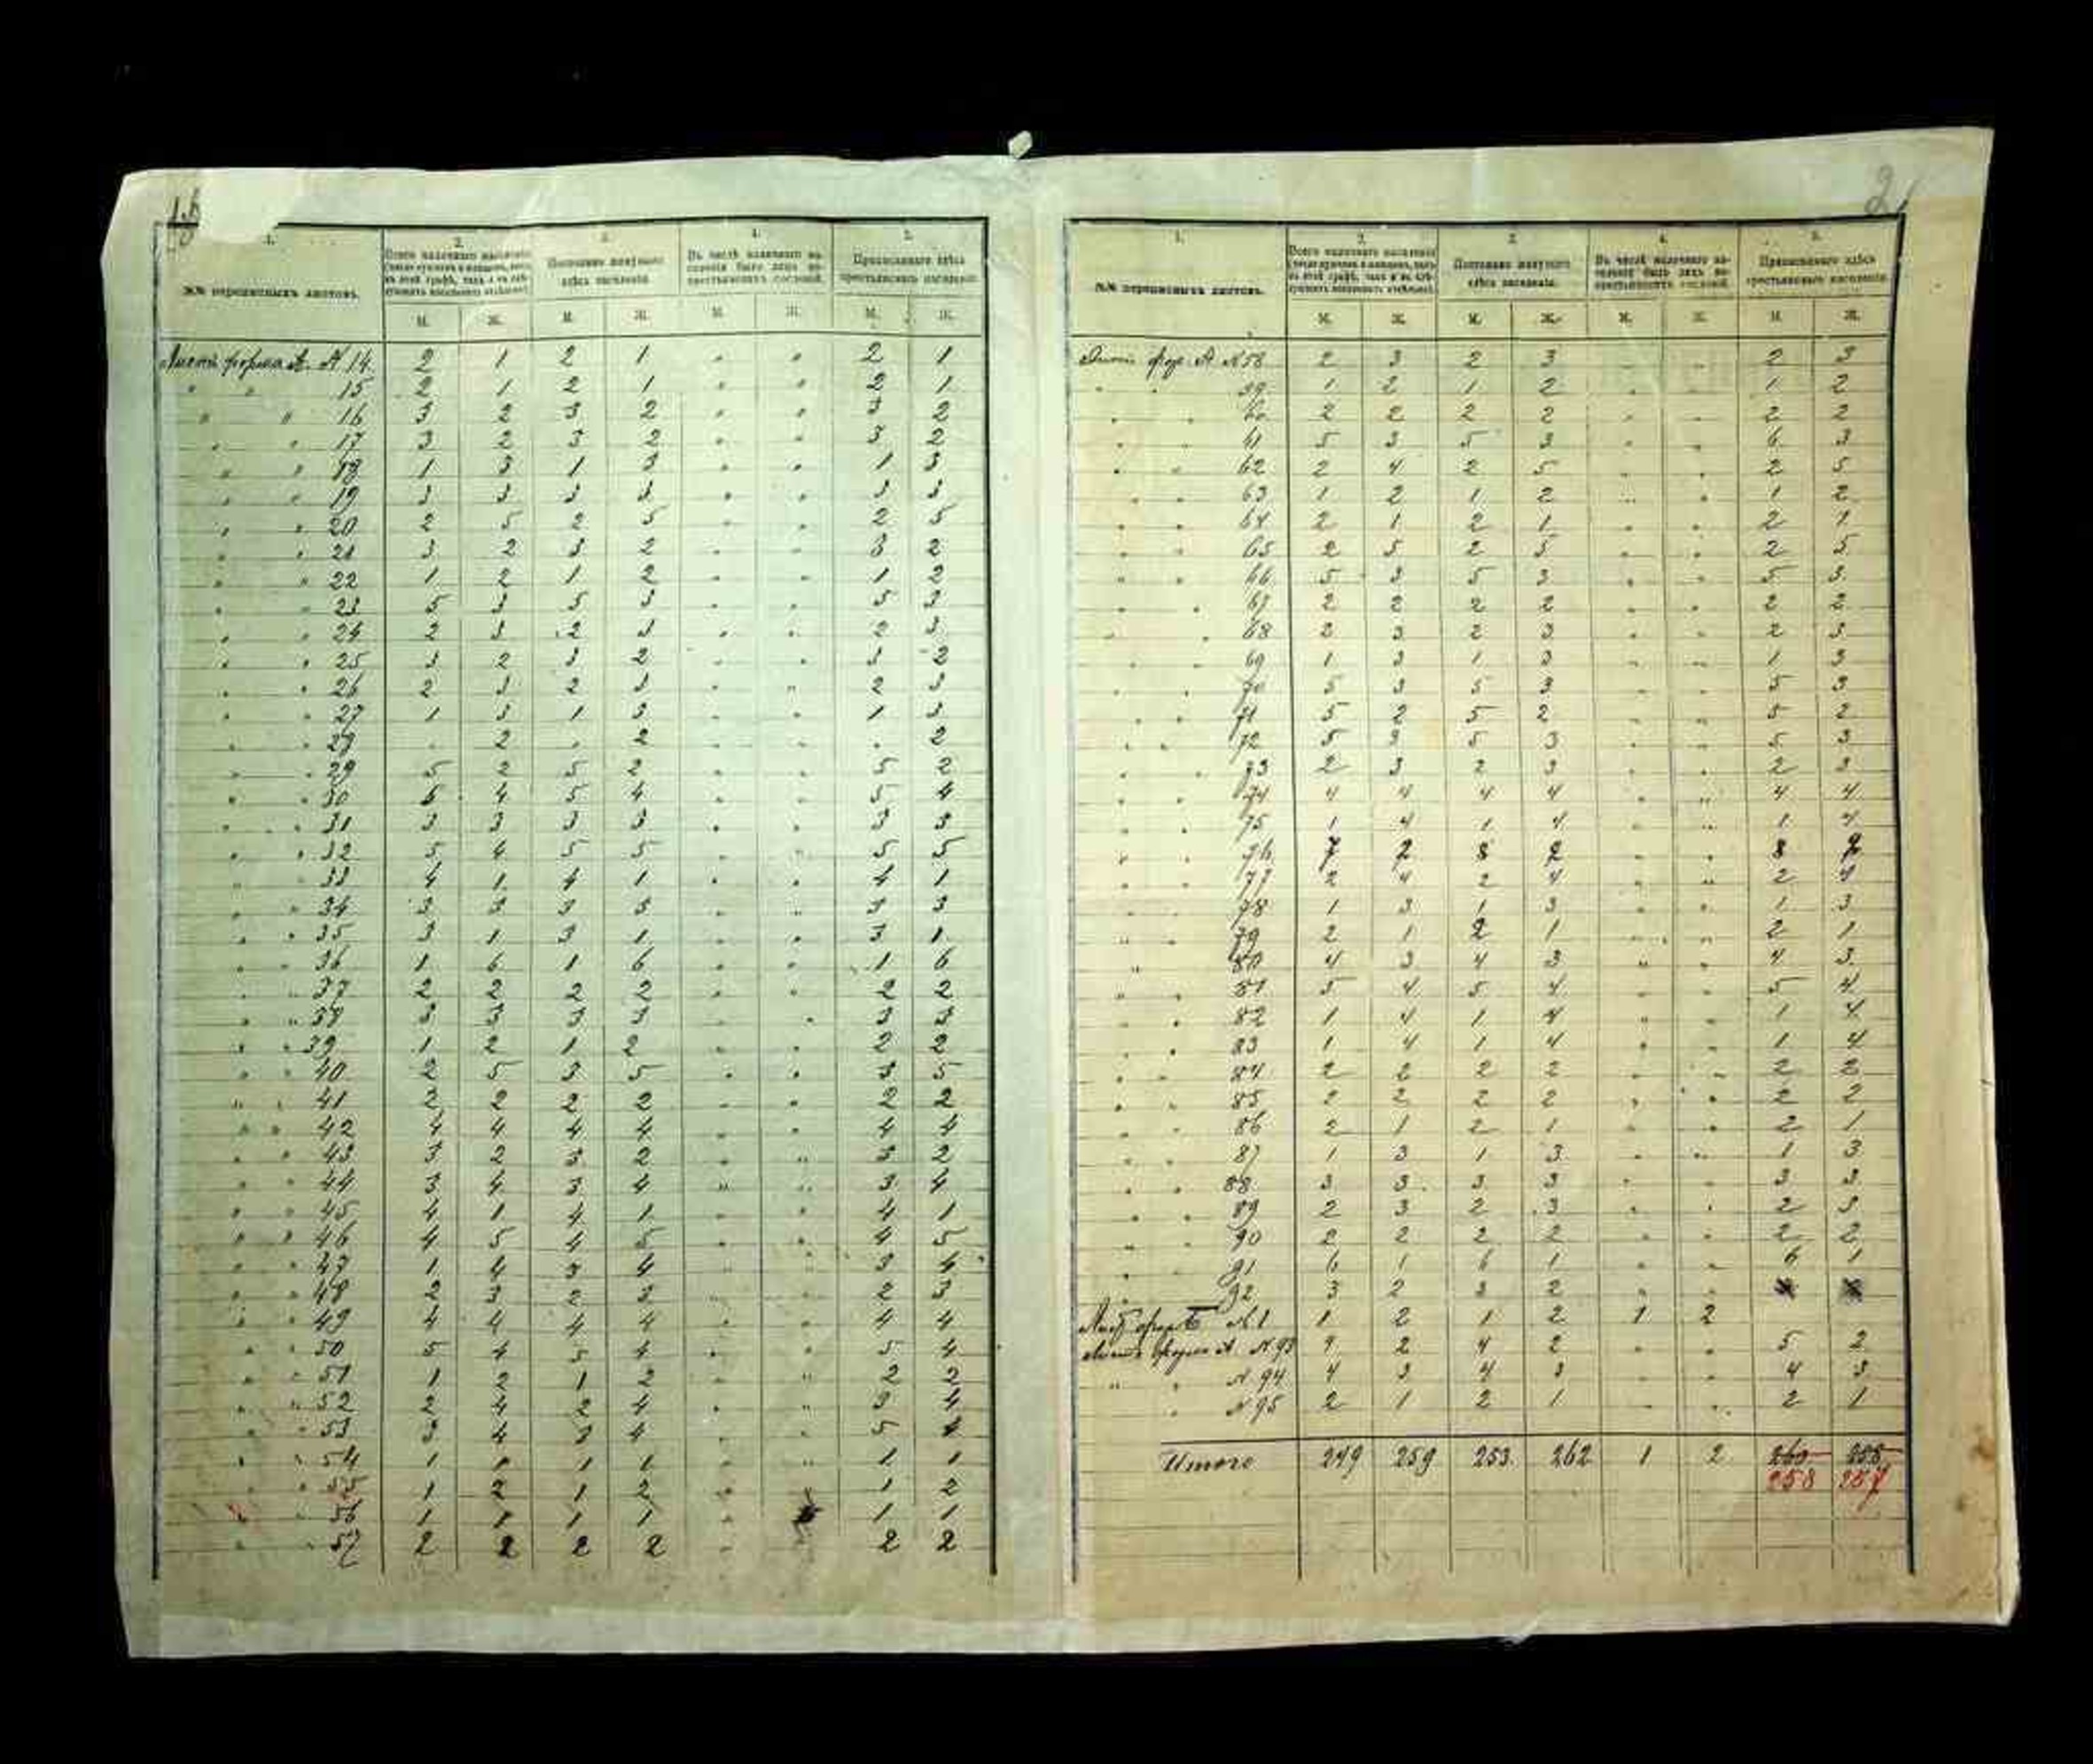 1. 2. 3. 4. 5.
№№ переписныхъ листовъ. Всего наличнаго населенія Постоянно живущаго здѣсь населенія. Въ числѣ наличнаго населенія было лицъ не крестьянскихъ сословій. Приписаннаго здѣсь крестьянскаго населенія.
М. Ж. М. Ж. М. Ж. М. Ж.
Листъ форма А. № 14. 2 1 2 1 " " 2 1
" " 15 2 1 2 1 " " 2 1
" " 16 3 2 3 2 " " 3 2
" " 17 3 2 3 2 " " 3 2
" " 18 1 3 1 3 " " 1 3
" " 19 3 3 3 3 " " 3 3
" " 20 2 5 2 5 " " 2 5
" " 21 3 2 3 2 " " 3 2
" " 22 1 2 1 2 " " 1 2
" " 23 5 3 5 3 " " 5 3
" " 24 2 3 2 3 " " 2 3
" " 25 3 2 3 2 " " 3 2
" " 26 2 3 2 3 " " 2 3
" " 27 1 3 1 3 " " 1 3
" " 28 " 2 " 2 " " " 2
" " 29 5 2 5 2 " " 5 2
" " 30 5 4 5 4 " " 5 4
" " 31 3 3 3 3 " " 3 3
" " 32 5 4 5 5 " " 5 5
" " 33 4 1 4 1 " " 4 1
" " 34 3 3 3 3 " " 3 3
" " 35 3 1 3 1 " " 3 1
" " 36 1 6 1 6 " " 1 6
" " 37 2 2 2 2 " " 2 2
" " 38 3 3 3 3 " " 3 3
" " 39 1 2 1 2 " " 2 2
" " 40 2 5 3 5 " " 3 5
" " 41 2 2 2 2 " " 2 2
" " 42 4 4 4 4 " " 4 4
" " 43 3 2 3 2 " " 3 2
" " 44 3 4 3 4 " " 3 4
" " 45 4 1 4 1 " " 4 1
" " 46 4 5 4 5 " " 4 5
" " 47 1 4 3 4 " " 3 4
" " 48 2 3 2 3 " " 2 3
" " 49 4 4 4 4 " " 4 4
" " 50 5 4 5 4 " " 5 4
" " 51 1 2 1 2 " " 2 2
" " 52 2 4 2 4 " " 3 4
" " 53 3 4 3 4 " " 5 4
" " 54 1 1 1 1 " " 1 1
" " 55 1 2 1 2 " " 1 2
" " 56 1 1 1 1 " 1 1
" " 57 2 2 2 2 " " 2 2
1. 2. 3. 4. 5.
№№ переписныхъ листовъ. Всего наличнаго населенія Постоянно живущаго здѣсь населенія. Въ числѣ наличнаго населенія было лицъ не крестьянскихъ сословій. Приписаннаго здѣсь крестьянскаго населенія.
М. Ж. М. Ж. М. Ж. М. Ж.
Листъ фор. А № 58 2 3 2 3 " " 2 3
" " 59 1 2 1 2 " " 1 2
" " 60 2 2 2 2 " " 2 2
" " 61 5 3 5 3 " " 6 3
" " 62 2 4 2 5 " " 2 5
" " 63 1 2 1 2 " " 1 2
" " 64 2 1 2 1 " " 2 1
" " 65 2 5 2 5 " " 2 5
" " 66 5 3 5 3 " " 5 3
" " 67 2 2 2 2 " " 2 2
" " 68 2 3 2 3 " " 2 3
" " 69 1 3 1 3 " " 1 3
" " 70 5 3 5 3 " " 5 3
" " 71 5 2 5 2 " " 5 2
" " 72 5 3 5 3 " " 5 3
" " 73 2 3 2 3 " " 2 3
" " 74 4 4 4 4 " " 4 4
" " 75 1 4 1 4 " " 1 4
" " 76 7 2 8 2 " " 8 2
" " 77 2 4 2 4 " " 2 4
" " 78 1 3 1 3 " " 1 3
" " 79 2 1 2 1 " " 2 1
" " 80 4 3 4 3 " " 4 3
" " 81 5 4 5 4 " " 5 4
" " 82 1 4 1 4 " " 1 4
" " 83 1 4 1 4 " " 1 4
" " 84 2 2 2 2 " " 2 2
" " 85 2 2 2 2 " " 2 2
" " 86 2 1 2 1 " " 2 1
" " 87 1 3 1 3 " " 1 3
" " 88 3 3 3 3 " " 3 3
" " 89 2 3 2 3 " " 2 3
" " 90 2 2 2 2 " " 2 2
" " 91 6 1 6 1 " " 6 1
" 92 3 2 3 2 " "
Лист форм Б № 1 1 2 1 2 1 2
Листъ форма А № 93 4 2 4 2 " " 5 2
" " № 94 4 3 4 3 " " 4 3
" № 95 2 1 2 1 " " 2 1
Итого 249 259 253 262 1 2 260 258
258 257